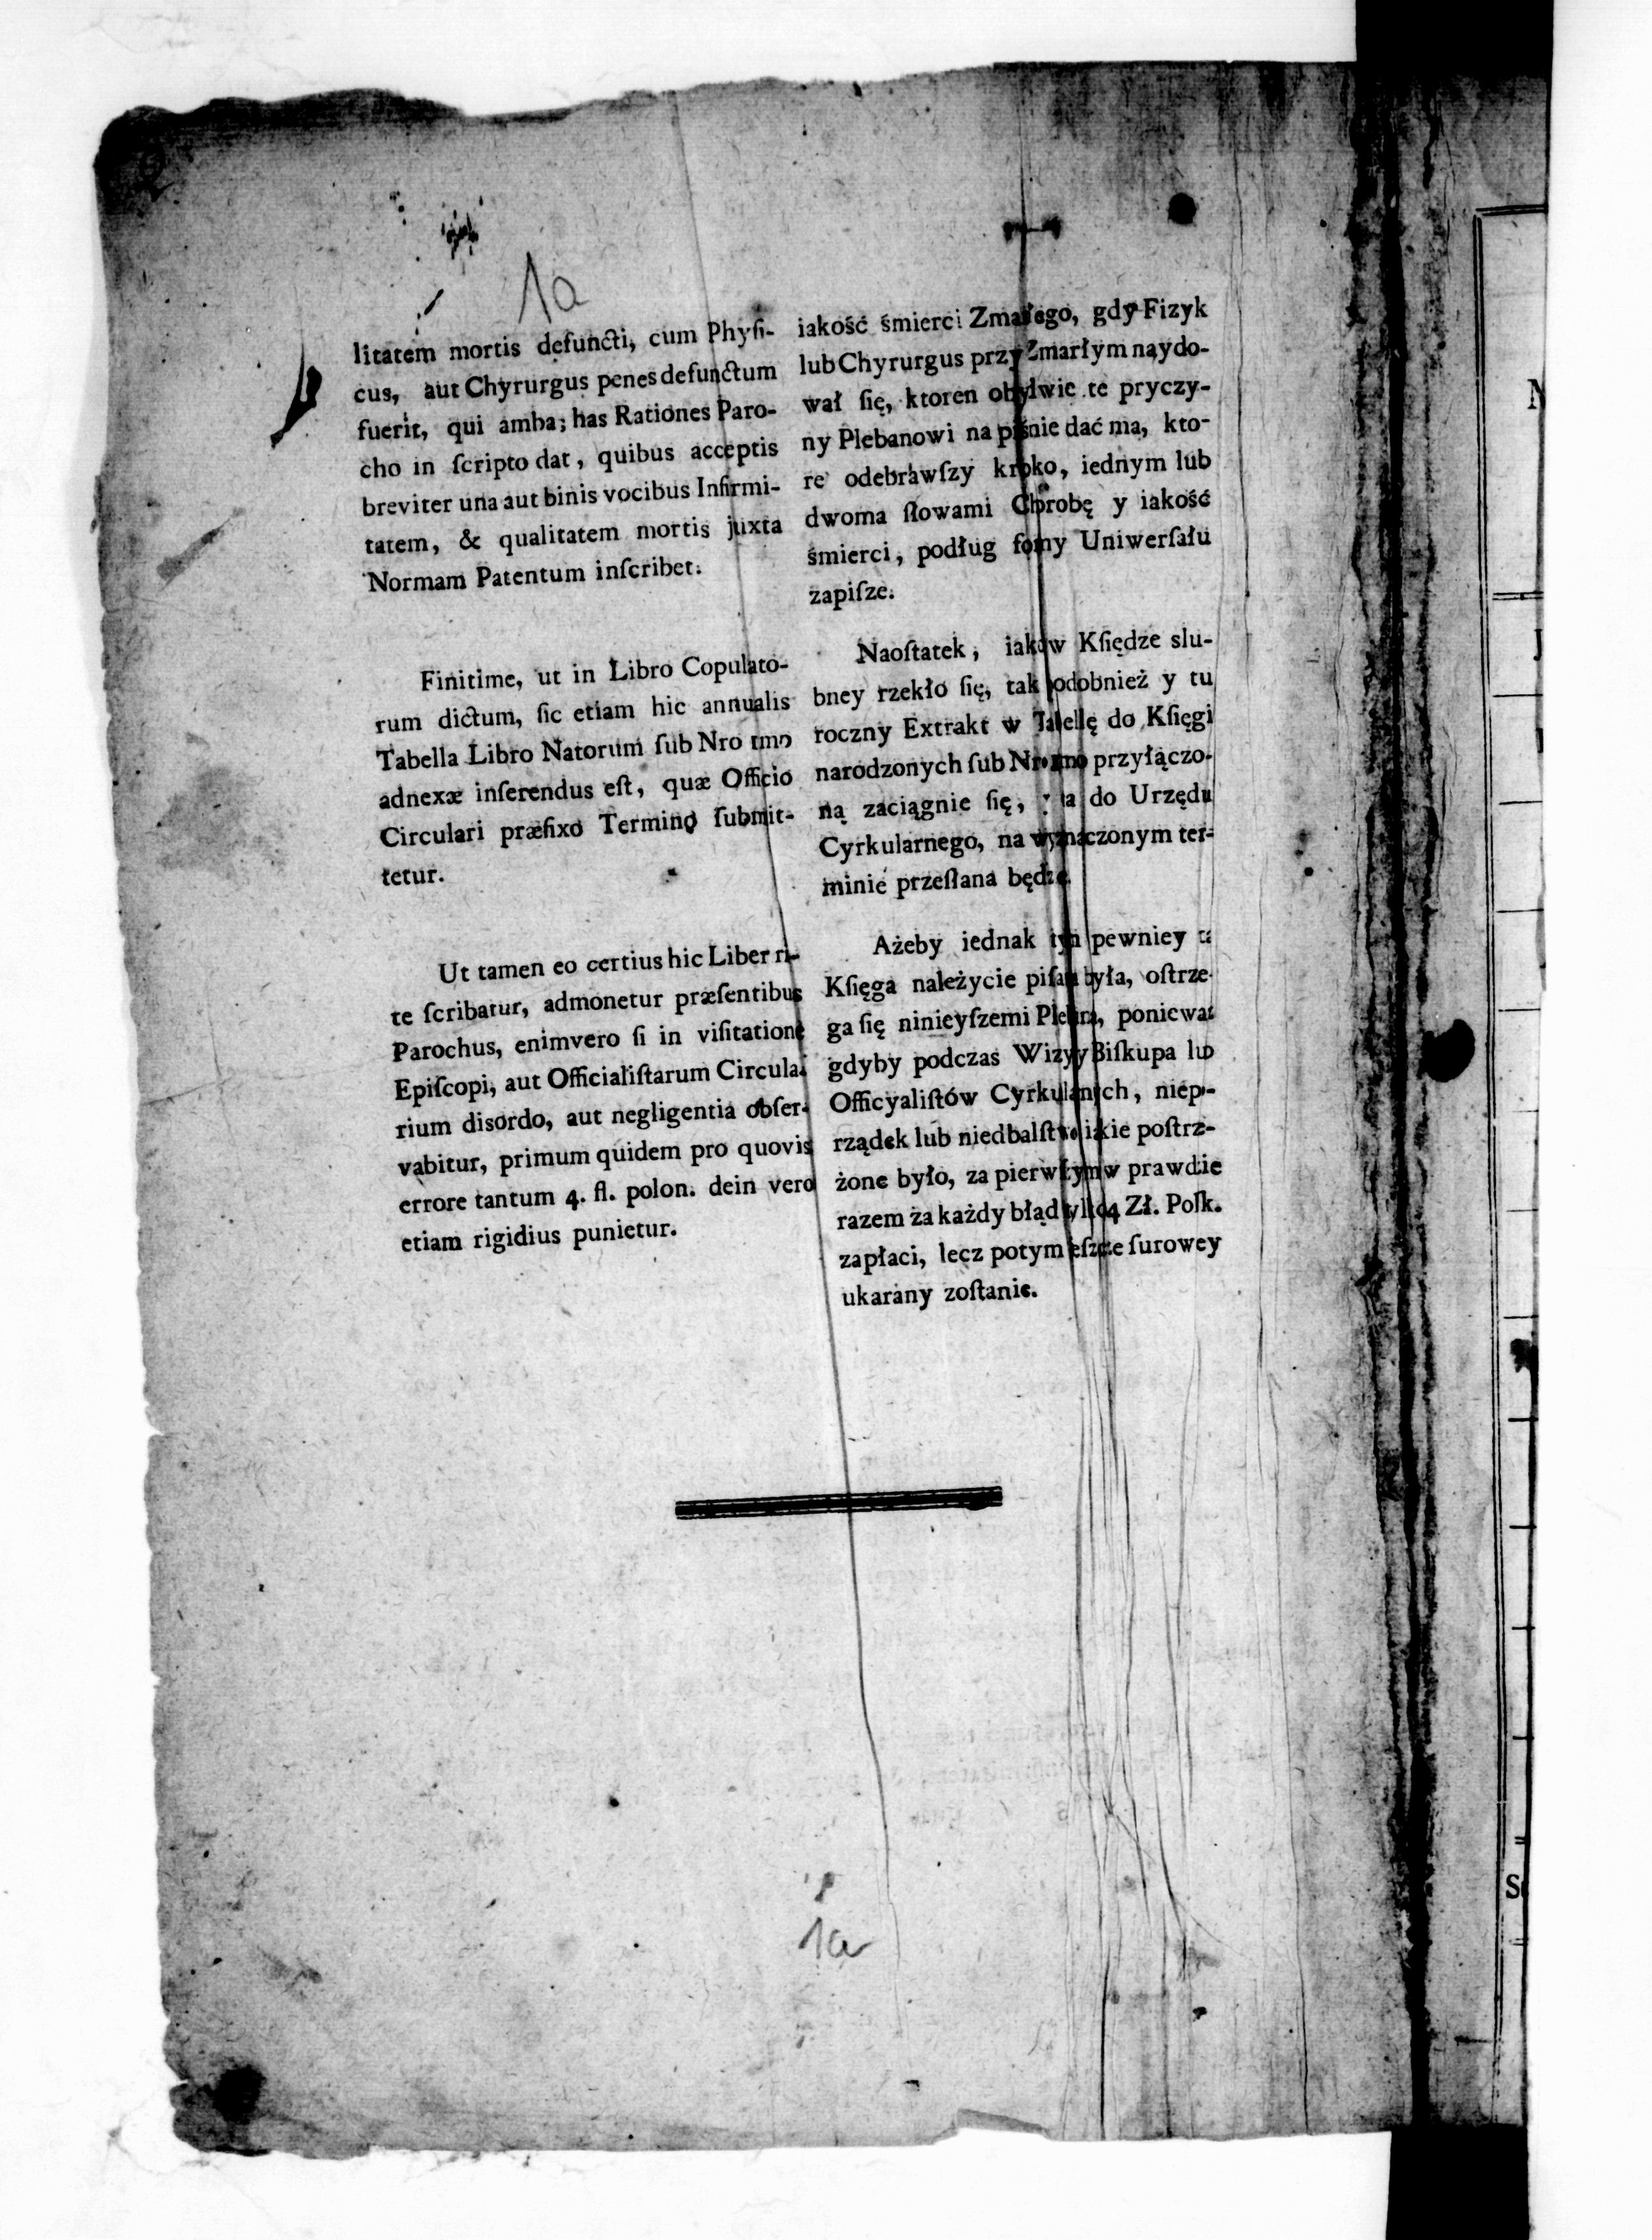 1a
litatem mortis defuncti, cum Phyſi-
cus, aut Chyrurgus penes defunctum
fuerit, qui amba; has Rationes Paro-
cho in ſcripto dat, quibus acceptis
breviter una aut binis vocibus Infirmi-
tatem, & qualitatem mortis juxta
Normam Patentum inſcribet.
Finitime, ut in Libro Copulato-
rum dictum, ſic etiam hic annualis
Tabella Libro Natorum ſub Nro 1mo
adnexæ inſerendus eſt, quæ Officio
Circulari præfixo Termino ſubmit-
tetur.
Ut tamen eo certius hic Liber ri-
te ſcribatur, admonetur præſentibus
Parochus, enimvero ſi in viſitatione
Epiſcopi, aut Officialiſtarum Circula-
rium disordo, aut negligentia obſer-
vabitur, primum quidem pro quovis
errore tantum 4. fl. polon. dein vero
etiam rigidius punietur.
iakość śmierci Zmarłego, gdy Fizyk
lub Chyrurgus przy Zmarłym naydo-
wał ſię, ktoren obydwie te pryczy-
ny Plebanowi na piśnie dać ma, kto-
re odebrawſzy krotko, iednym lub
dwoma ſłowami Chorobę y iakość
śmierci, podług formy Uniwerſału
zapiſze.
Naoſtatek, iako w Kſiędze slu-
bney rzekło ſię, tak podobnież y tu
roczny Extrakt w Tabellę do Kſięgi
narodzonych ſub Nro 1mo przyłączo-
ną zaciągnie ſię, y ta do Urzędu
Cyrkularnego, na wyznaczonym ter-
minie przeſłana będzie.
Ażeby iednak tym pewniey ta
Kſięga należycie piſana była, oſtrze-
ga ſię ninieyſzemi Pleban, ponieważ
gdyby podczas Wizyty Biſkupa lub
Officyaliſtów Cyrkularnych, niepo-
rządek lub niedbalſtwo iakie poſtrze-
żone było, za pierwſzym w prawdzie
razem za każdy błąd tylko 4 Zł. Polſk.
zapłaci, lecz potym ieſzcze ſurowey
ukarany zoſtanie.
1a